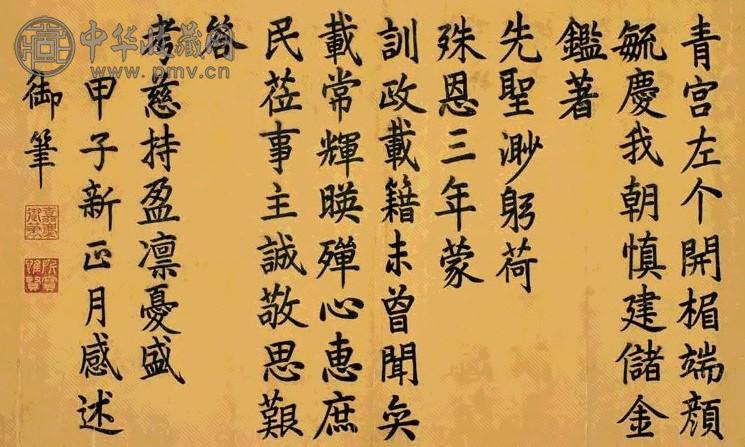 中华收藏网
www.pmv.cn
青宫左个開楣端顏
毓慶我朝慎建儲金
鑑著
先聖渺躬荷
殊恩三年蒙
訓政載籍未曾聞奕
載常輝暎殫心惠庶
民莅事主誠敬思艱
答
考慈持盈凛憂盛
甲子新正月感述
御筆
嘉慶御筆
所寶惟賢